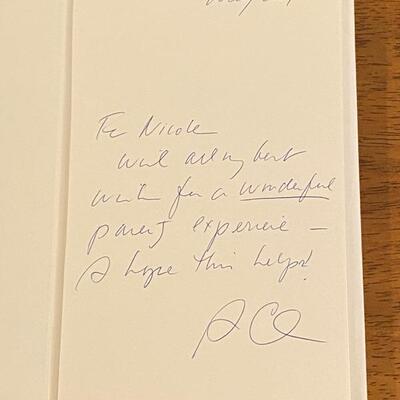 To Nicole
with all my best
wishes for a wonderful
parent experience —
I hope this helps!